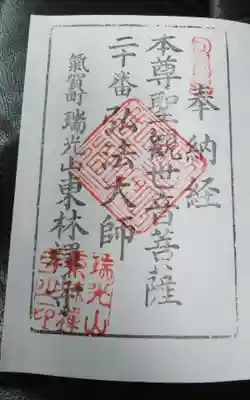 奉納経
本尊聖観世音菩薩
二十番弘法大師
氣賀町瑞光山東林禪寺
瑞光山